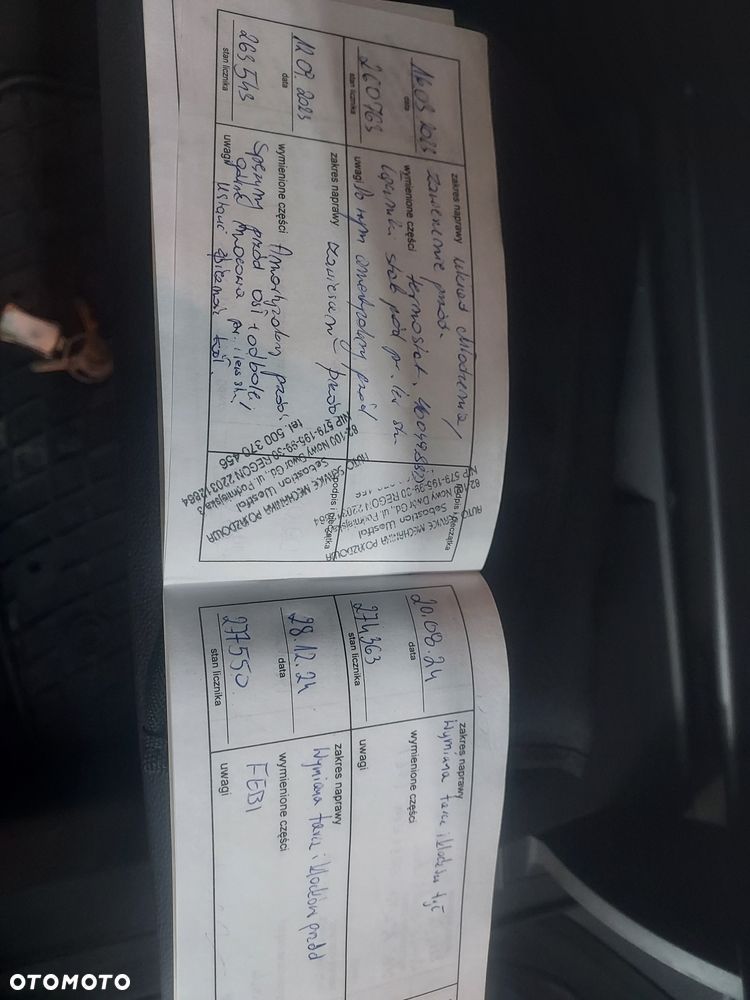 16.03.2023
data
260763
stan licznika
zakres naprawy układ chłodzenia /
zawieszenie przód.
wymienione części termostat,
łączniki stab przód pr. lew str
uwagi
podpis i pieczątka
AUTO SERVICE MECHANIKA POJAZDOWA
Sebastian Westfal
82-100 Nowy Dwór Gd., ul. Podmiejska 3
NIP 579-195-99-39 REGON 220312884
12.09.2023
data
263543
stan licznika
zakres naprawy zawieszenie przód
wymienione części Amortyzatory przód
Sprężyny przód osł + odboje,
górne mocowa pr. i lew str /
uwagi ustaw zbieżność kół
podpis i pieczątka
AUTO SERVICE MECHANIKA POJAZDOWA
Sebastian Westfal
82-100 Nowy Dwór Gd., ul. Podmiejska 3
NIP 579-195-99-39 REGON 220312884
tel. 500 370 456
20.08.24
data
274363
stan licznika
zakres naprawy
Wymiana tarcz i klocków tył
wymienione części
uwagi
28.12.24
data
277550
stan licznika
zakres naprawy
Wymiana tarcz i klocków przód
wymienione części
FEBI
uwagi
OTOMOTO